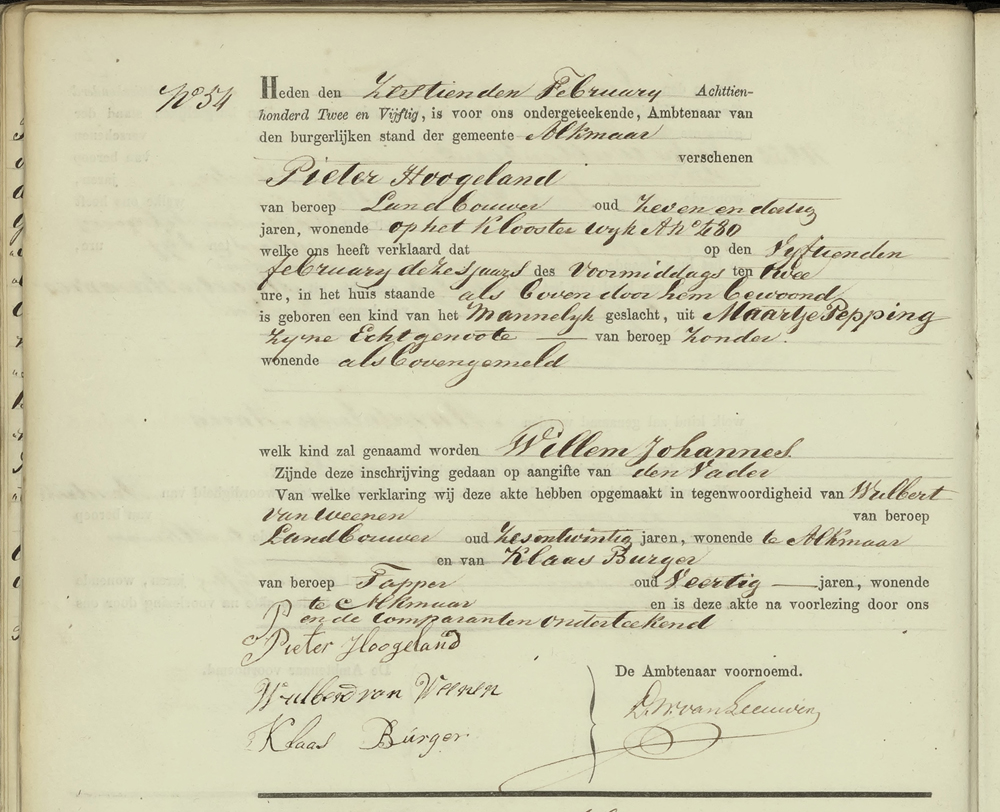 No 54
Heden den Zestienden February Achttien-
honderd Twee en Vijftig, is voor ons ondergeteekende, Ambtenaar van
den burgerlijken stand der gemeente Alkmaar
verschenen
Pieter Hoogeland
van beroep Landbouwer oud Zeven en dertig
jaren, wonende op het Klooster wyk A No 480
welke ons heeft verklaard dat op den Vyftienden
february dezes jaars des Voormiddags ten twee
ure, in het huis staande als boven door hem bewoond
is geboren een kind van het Mannelyk geslacht, uit Maartje Pepping
Zyne Echtgenoote van beroep Zonder.
wonende als bovengemeld
welk kind zal genaamd worden Willem Johannes
Zijnde deze inschrijving gedaan op aangifte van den Vader
Van welke verklaring wij deze akte hebben opgemaakt in tegenwoordigheid van Wulbert
van Weenen van beroep
Landbouwer oud Zesentwintig jaren, wonende te Alkmaar
en van Klaas Burger
van beroep Tapper oud Veertig jaren, wonende
te Alkmaar en is deze akte na voorlezing door ons
en de Comparanten onderteekend
Pieter Hoogeland
De Ambtenaar voornoemd.
Wulberd van Weenen
van Leeuwen
Klaas Burger